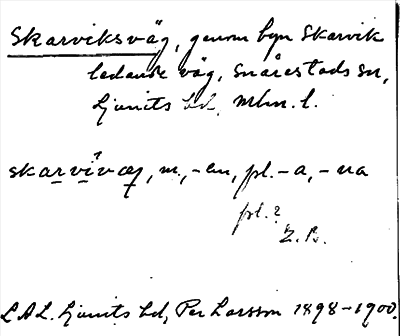 Skarviksväg, genom byn Skarvik
ledande väg, Snårestads sn,
Ljunits hd, Mlm. l.
skarvivæg, m., -en, pl. -a, -na
pl.?
Z. P.
L A L. Ljunits hd, Per Larsson 1898-1900.